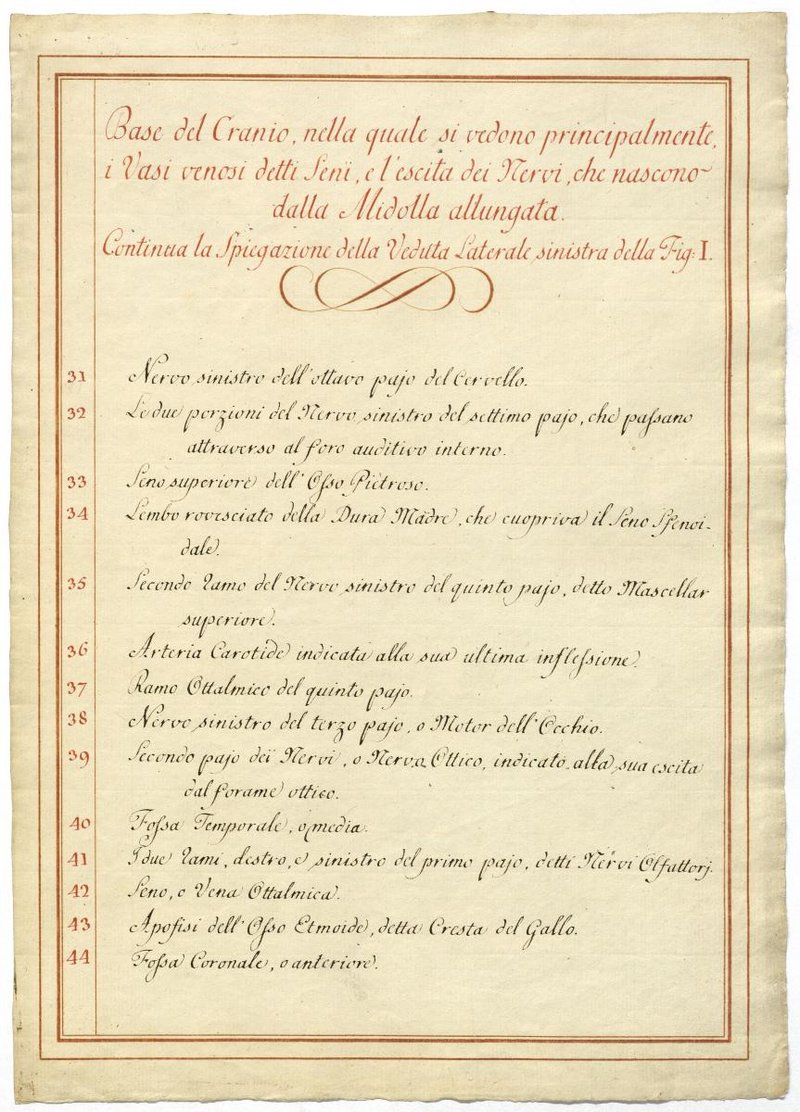 Base del Cranio, nella quale si vedono principalmente,
i Vasi venosi detti Senï, e l'escita dei Nervi, che nascono
dalla Midolla allungata.
Continua la Spiegazione della Veduta Laterale sinistra della Fig: I.
31 Nervo sinistro dell'ottavo pajo del Cervello.
32 Le due porzioni del Nervo sinistro del settimo pajo, che passano
attraverso al foro auditivo interno.
33 Seno superiore dell'Osso Pietroso.
34 Lembo rovesciato della Dura Madre, che cuopriva il Seno Sfenoi-
dale.
35 Secondo ramo del Nervo sinistro del quinto pajo, detto Mascellar
superiore.
36 Arteria Carotide indicata alla sua ultima inflessione.
37 Ramo Ottalmico del quinto pajo.
38 Nervo sinistro del terzo pajo, o Motor dell'Occhio.
39 Secondo pajo deï Nervi, o Nervo Ottico, indicato alla sua escita
dal forame ottico.
40 Fossa Temporale, o media.
41 I due rami, destro, e sinistro del primo pajo, detti Nervi Olfattorj.
42 Seno, o Vena Ottalmica.
43 Apofisi dell'Osso Etmoide, detta Cresta del Gallo.
44 Fossa Coronale, o anteriore.